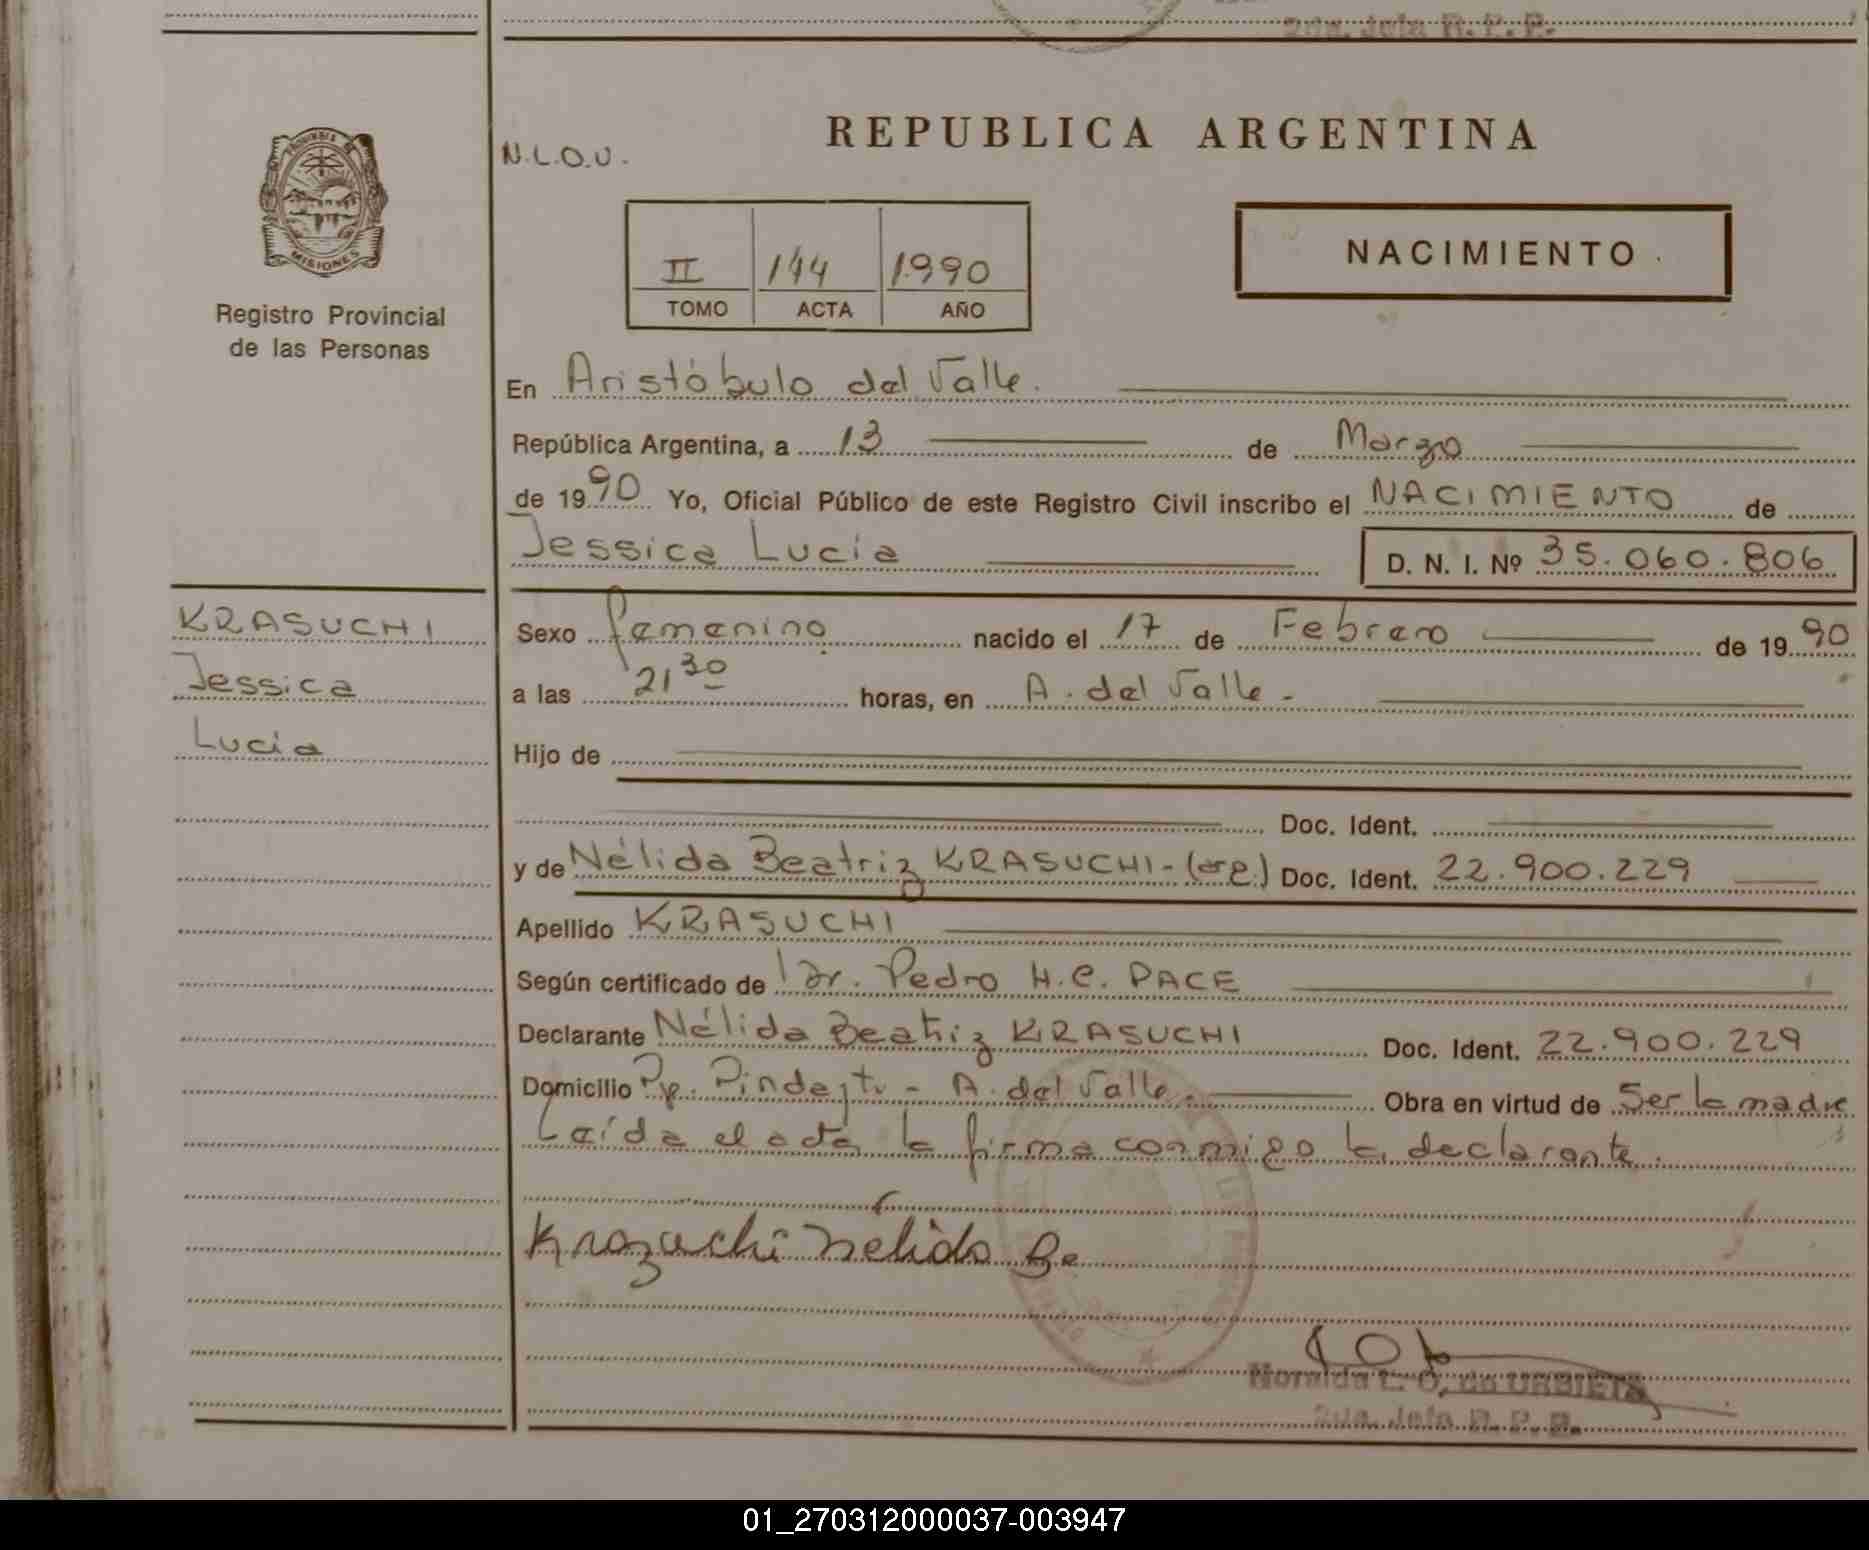 2da. Jefa R. P. P.
REPUBLICA ARGENTINA
N.L.O.U.
MISIONES
Registro Provincial
de las Personas
II 144 1990
TOMO ACTA AÑO
NACIMIENTO
En Aristóbulo del Valle.
República Argentina, a 13 de Marzo
de 1990 Yo, Oficial Público de este Registro Civil inscribo el NACIMIENTO de
Jessica Lucía D. N. I. Nº 35.060.806
KRASUCHI
Jessica
Lucía
Sexo femenino nacido el 17 de Febrero de 1990
a las 21 30 horas, en A. del Valle.-
Hijo de
Doc. Ident.
y de Nélida Beatriz KRASUCHI-(arg.) Doc. Ident. 22.900.229
Apellido KRASUCHI
Según certificado de Dr. Pedro H.C. PACE
Declarante Nélida Beatriz KRASUCHI Doc. Ident. 22.900.229
Domicilio Pje. Pindayty - A. del Valle.- Obra en virtud de Ser la madre
Leída el acta la firma conmigo la declarante.
Krazuchi Nélida Be
Noralda L. O. de URBIETA
2da. Jefa R. P. P.
01_270312000037-003947